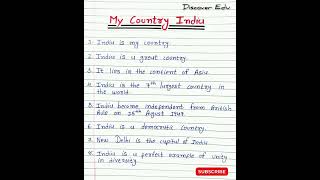 Discover Edu
My Country India
1. India is my country.
2. India is a great country.
3. It lies in the contient of Asia.
4. India is the 7th largest country in
the world.
5. India became independent from British
Rule on 15th August 1947.
6. India is a democratic country.
7. New Delhi is the capital of India
8. India is a perfect example of unity
in diversity.
SUBSCRIBE